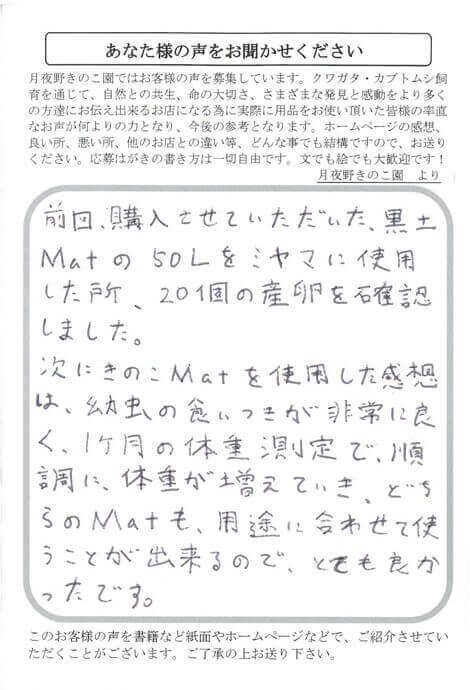 あなた様の声をお聞かせください
月夜野きのこ園ではお客様の声を募集しています。クワガタ・カブトムシ飼
育を通じて、自然との共生、命の大切さ、さまざまな発見と感動をより多く
の方達にお伝え出来るお店になる為に実際に用品をお使い頂いた皆様の率直
なお声が何よりの力となり、今後の参考となります。ホームページの感想、
良い所、悪い所、他のお店との違い等、どんな事でも結構ですので、お送り
ください。応募はがきの書き方は一切自由です。文でも絵でも大歓迎です！
月夜野きのこ園　より
前回、購入させていただいた、黒土
Matの50Lをミヤマに使用
した所、20個の産卵を確認
しました。
次にきのこMatを使用した感想
は、幼虫の食いつきが非常に良
く、1ヶ月の体重測定で、順
調に、体重が増えていき、どち
らのMatも、用途に合わせて使
うことが出来るので、とても良か
ったです。
このお客様の声を書籍など紙面やホームページなどで、ご紹介させてい
ただくことがございます。ご了承の上お送り下さい。